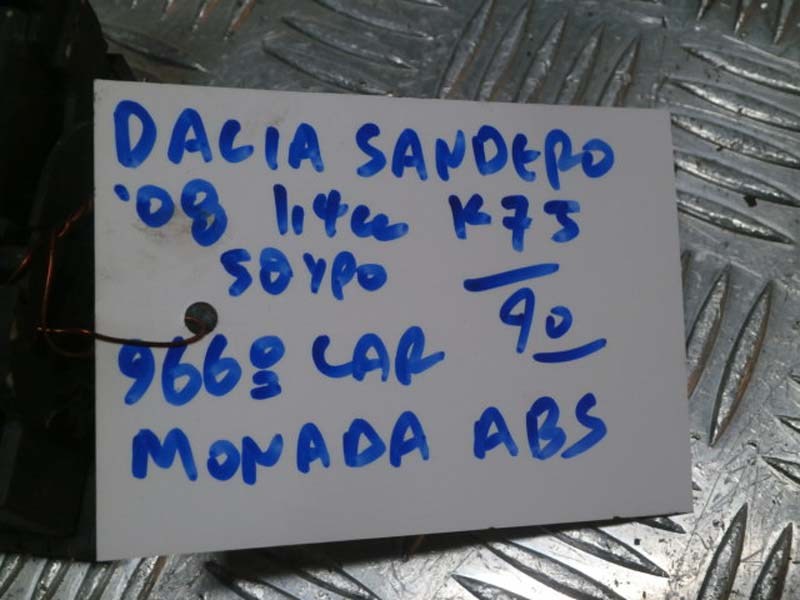 DACIA SANDERO
'08 1,4cc K7J
5θυρο 90
966º CAR
MONADA ABS